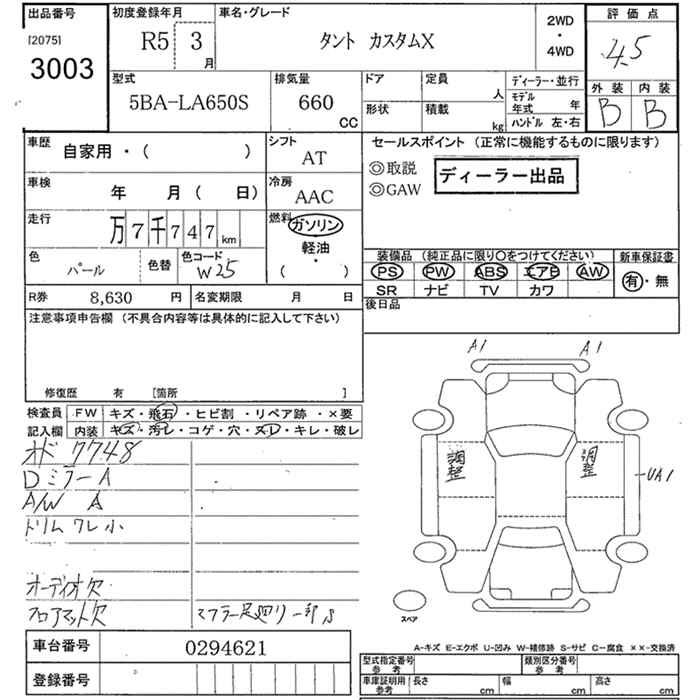 出品番号
[2075]
3003
初度登録年月
R5 3
月
車名・グレード
タント カスタムX
2WD
・
4WD
評価点
4.5
外装 内装
B B
型式
5BA-LA650S
排気量
660
CC
ドア
定員
人
形状
積載
kg
ディーラー・並行
モデル
年式 年
ハンドル 左・右
車歴
自家用・( )
シフト
AT
車検
年 月( 日)
冷房
AAC
走行
万7千747km
燃料
ガソリン
軽油・
( )
色
パール
色替
色コード
W25
R券 8,630 円
名変期限 月 日
セールスポイント (正常に機能するものに限ります)
◎取説
◎GAW
ディーラー出品
装備品 (純正品に限り○をつけてください)
PS PW ABS エアB AW
SR ナビ TV カワ
新車保証書
有・無
後日品
注意事項申告欄 (不具合内容等は具体的に記入して下さい)
修復歴 有 [箇所 ]
検査員
記入欄
FW キズ・飛石・ヒビ割・リペア跡・×要
内装 キズ・汚レ・コゲ・穴・スレ・キレ・破レ
オド 7748
Dミラー A
A/W A
トリム ワレ 小
オーディオ欠
フロアマット欠
マフラー足廻り一部S
A1 A1
調整 調整
UA1
スペア
A-キズ E-エクボ U-凹み W-補修跡 S-サビ C-腐食 ××-交換済
車台番号 0294621
登録番号
型式指定番号
参考
類別区分番号
参考
車庫証明用
参考
長さ cm
幅 cm
高さ cm